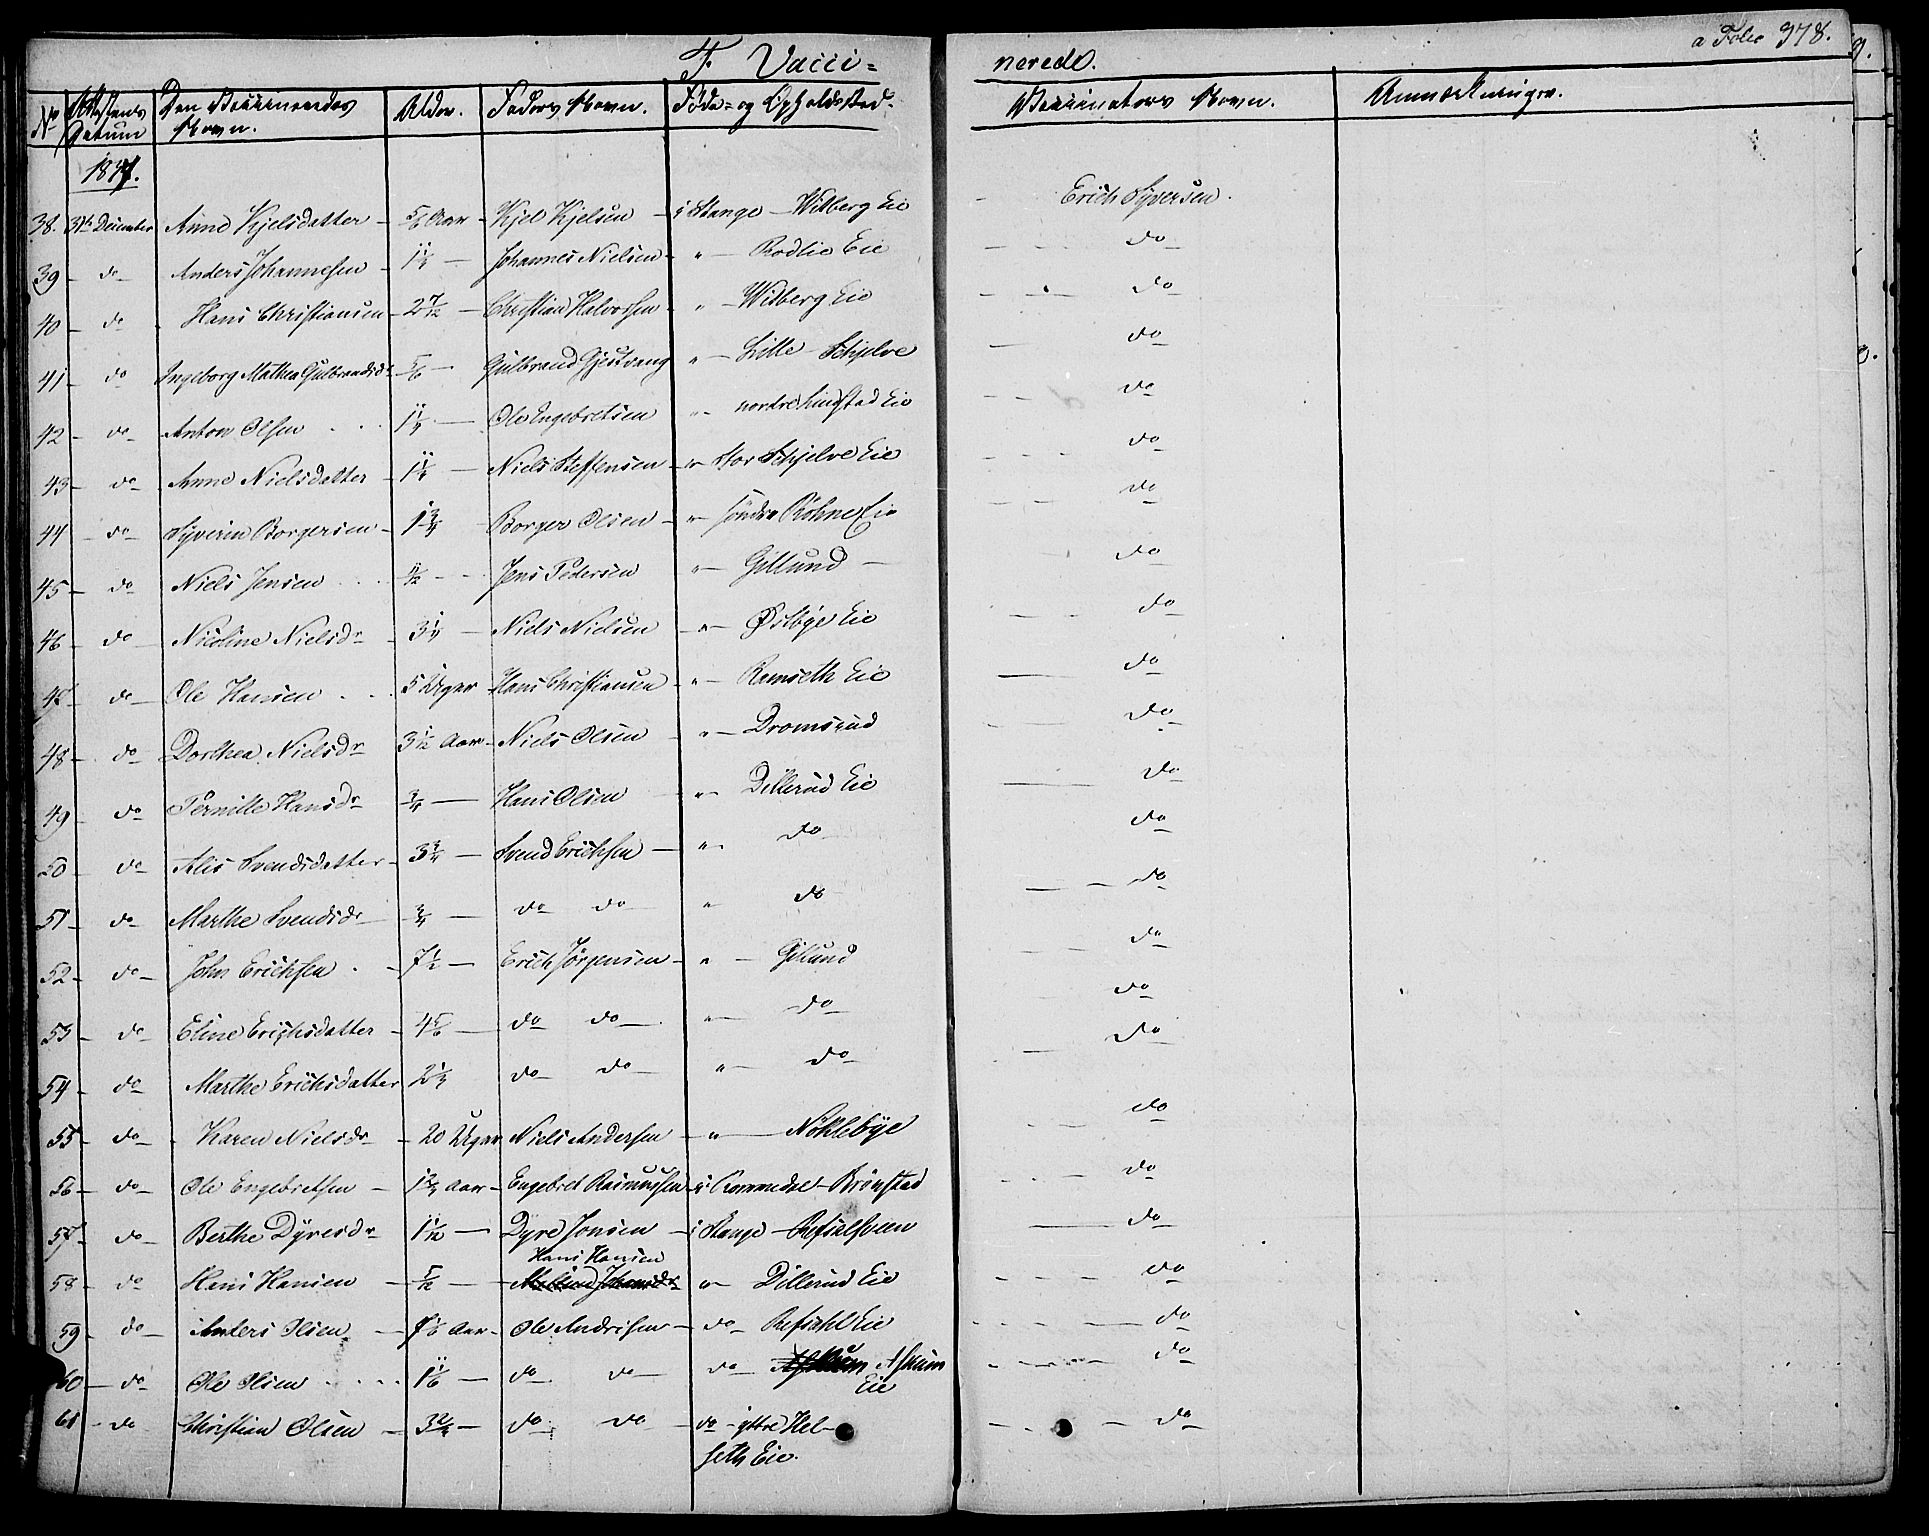 a Folio 378.
F. Vacci= nerede.
No Attestens Datum Den Vaccineredes Navn. Alder. Faders Navn. Føde- og Opholdssted. Vaccinators Navn. Anmærkninger.
1841.
38. 31te December Anne Kjelsdatter - 5/6 Aar - Kjel Kjelsen - i Stange - Wilberg Eie Erich Syversen.
39 - do - Anders Johannesen - 1 1/4 - Johannes Nielsen - " - Rodlie Eie do
40 - do - Hans Christiansen - 2 7/12 - Christian Halvorsen - " - Wilberg Eie do
41 - do Ingeborg Mathea Gulbrandsdr 5/6 - Gulbrand Gjestvang " - Lille Schjelve do
42 - do - Anton Olsen 1 1/4 - Ole Engebretsen " - nordre Lindstad Eie do
43 - do - Anne Nielsdatter - 1 1/4 - Niels Steffensen - " - Stor Schjelve Eie do
44 - do - Syverin Borgersen - 1 3/4 Borger Olsen - " - søndre Røhne Eie do
45 - do Niels Jensen 1/2 - Jens Pedersen " - Gillund - do
46 - do - Nicoline Nielsdr - 3 1/4 - Niels Nielsen - " - Østbye Eie do
47 - do - Ole Hansen 5 Uger - Hans Christiansen - " - Ramseth Eie do
48 - do - Dorthea Nielsdr 3 1/2 Aar - Niels Olsen " - Dromsrud do
49 - do Pernille Hansdr 3/4 - Hans Olsen " - Dillerud Eie do
50 - do - Alis Svendsdatter - 3 3/4 - Svend Erichsen - " do do
51 - do - Marthe Svendsdr - 3/4 - do do - " do do
52 - do - John Erichsen - 7 1/2 - Erich Jørgensen - " - Gillund do
53 - do - Eline Erichsdatter - 4 5/6 - do do - " - do do
54 - do Marthe Erichsdatter 2 1/4 do do - " - do do
55 - do - Karen Nielsdr - 20 Uger Niels Andersen - " - Nøklebye do
56 - do - Ole Engebretsen - 1 3/4 Aar - Engebret Rasmussen - i Romedal - Brønstad do
57 - do - Berthe Dyresdr 1 1/12 - Dyre Jonsen - i Stange - Refsalsveen do
Hans Hansen
58 - do Hans Hansen - 5/12 - " - Dillerud Eie do
59 - do - Anders Olsen - Aar - Ole Andersen - do - Refsahl Eie do
60 - do - Ole Olsen 1 1/6 - do do do - Askum do
Eie
61 - do Christian Olsen - 3 2/4 - do do - do - yttre Hel- do
seth Eie.